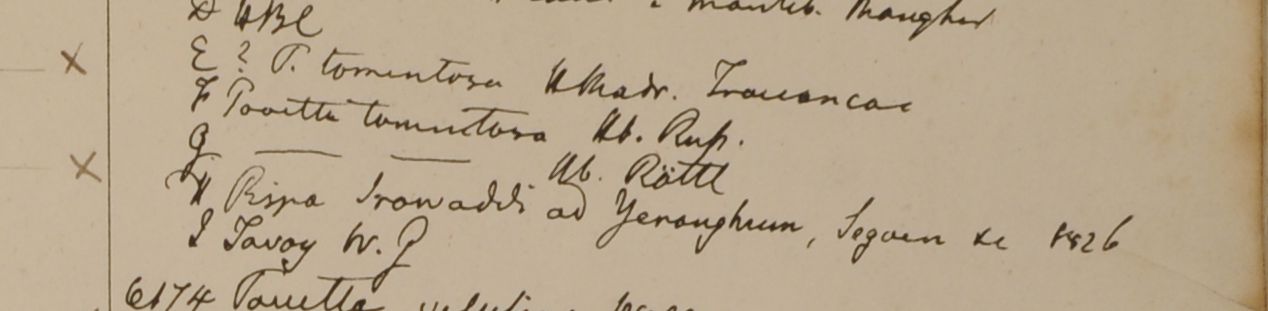 D HBC
montib. Maughur
E ? P. tomentosa HMadr. Travancae
F Pavetta tomentosa Hb. Rup.
G — — Hb. Röttl
H Ripa Irawaddi ad Yenanghum, Segaen &c 1826
I Tavoy W. G
6174 Pavetta